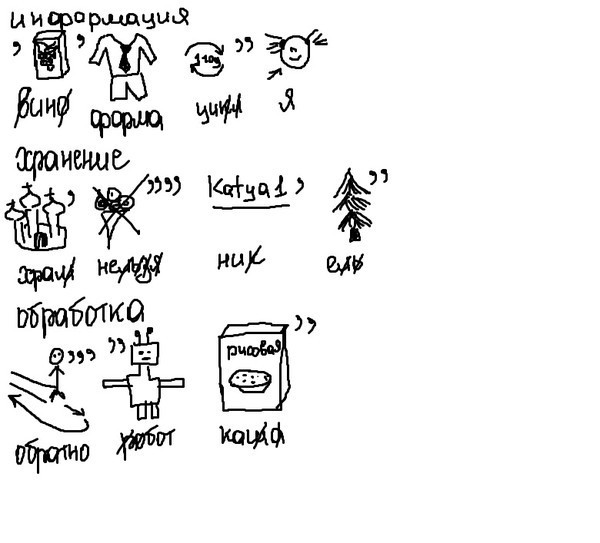 информация
, , ,,
1 год
вино форма цикл я
хранение
,
,,,,
Katya1 ,
,,
храм нельзя ник ель
обработка
,,, ,, ,,
рисовая
обратно робот каша